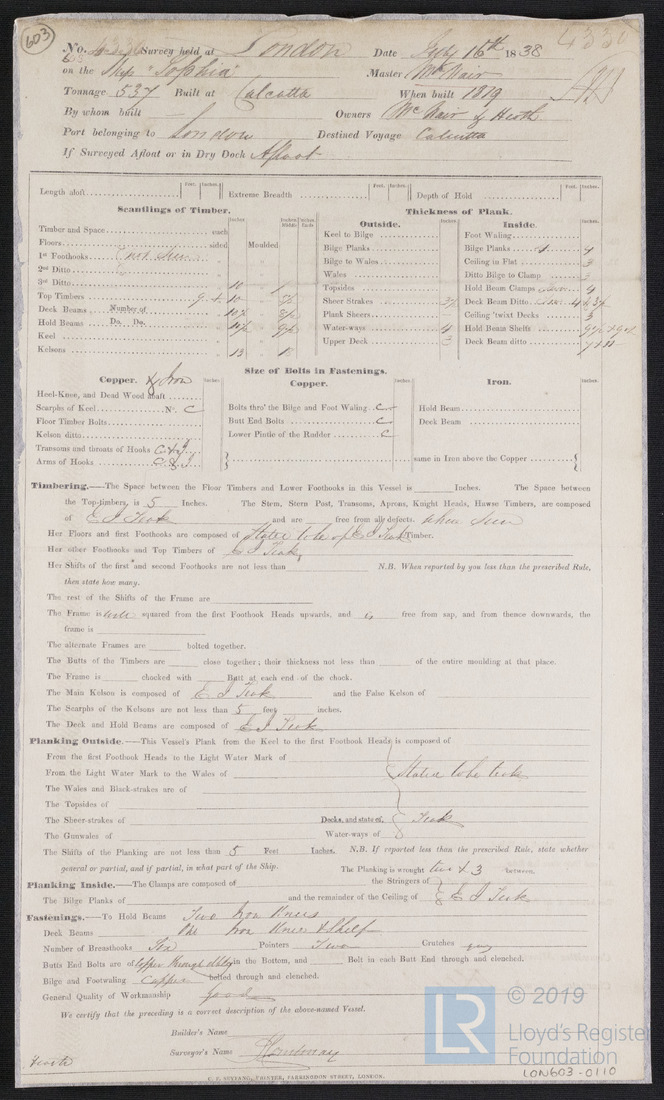 603
No. Survey held at London Date Feby 16th 1838
on the Ship "Sophia" Master McNair
Tonnage 537 Built at Calcutta When built 1819
By whom built — Owners McNair & Heath
Port belonging to London Destined Voyage Calcutta
If Surveyed Afloat or in Dry Dock Afloat
Feet. Inches. Feet. Inches. Feet. Inches.
Length aloft Extreme Breadth Depth of Hold
Scantlings of Timber.
Inches Inches Middle Inches Ends
Timber and Space each
Floors sided Moulded
1st Foothooks not seen
2nd Ditto
3rd Ditto 10
Top Timbers 9 & 10
Deck Beams Number of
Hold Beams Do. Do.
Keel
Kelsons 13
Thickness of Plank.
Outside. Inches.
Keel to Bilge
Bilge Planks
Bilge to Wales
Wales
Topsides
Sheer Strakes
Plank Sheers
Water-ways 4
Upper Deck 3
Inside. Inches.
Foot Waling
Bilge Planks 4
Ceiling in Flat 3
Ditto Bilge to Clamp 3
Hold Beam Clamps 4
Deck Beam Ditto
Ceiling 'twixt Decks 3
Hold Beam Shelfs
Deck Beam ditto
Size of Bolts in Fastenings.
Copper. & Iron Inches
Heel-Knee, and Dead Wood abaft
Scarphs of Keel No. C
Floor Timber Bolts
Kelson ditto
Transoms and throats of Hooks C & I
Arms of Hooks C & I
Copper. Inches.
Bolts thro' the Bilge and Foot Waling C
Butt End Bolts C
Lower Pintle of the Rudder C
Iron. Inches.
Hold Beam
Deck Beam
same in Iron above the Copper
Timbering.—The Space between the Floor Timbers and Lower Foothooks in this Vessel is Inches. The Space between
the Top-timbers, is 5 Inches. The Stem, Stern Post, Transoms, Aprons, Knight Heads, Hawse Timbers, are composed
of E I Teak and are free from all defects. when seen
Her Floors and first Foothooks are composed of Stated to be of E I Teak Timber.
Her other Foothooks and Top Timbers of E I Teak
Her Shifts of the first and second Foothooks are not less than N.B. When reported by you less than the prescribed Rule,
then state how many.
The rest of the Shifts of the Frame are
The Frame is well squared from the first Foothook Heads upwards, and is free from sap, and from thence downwards, the
frame is
The alternate Frames are bolted together.
The Butts of the Timbers are close together; their thickness not less than of the entire moulding at that place.
The Frame is chocked with Butt at each end of the chock.
The Main Kelson is composed of E I Teak and the False Kelson of
The Scarphs of the Kelsons are not less than 5 feet inches.
The Deck and Hold Beams are composed of E I Teak
Planking Outside.—This Vessel's Plank from the Keel to the first Foothook Heads is composed of
From the first Foothook Heads to the Light Water Mark of
From the Light Water Mark to the Wales of Stated to be teak
The Wales and Black-strakes are of
The Topsides of
The Sheer-strakes of Decks, and state of, Teak
The Gunwales of Water-ways of
The Shifts of the Planking are not less than 5 Feet Inches. N.B. If reported less than the prescribed Rule, state whether
general or partial, and if partial, in what part of the Ship. The Planking is wrought two & 3 between.
Planking Inside.—The Clamps are composed of the Stringers of
The Bilge Planks of and the remainder of the Ceiling of E I Teak
Fastenings.—To Hold Beams Two Iron Knees
Deck Beams One Iron Knee & Shelf
Number of Breasthooks Ten Pointers Two Crutches
Butts End Bolts are of Copper through in the Bottom, and Bolt in each Butt End through and clenched.
Bilge and Footwaling Copper bolted through and clenched.
General Quality of Workmanship good
We certify that the preceding is a correct description of the above-named Vessel.
Builder's Name
Surveyor's Name
C. F. SEYFANG, PRINTER, FARRINGDON STREET, LONDON.
LR © 2019
Lloyd's Register
Foundation
LON603-0110